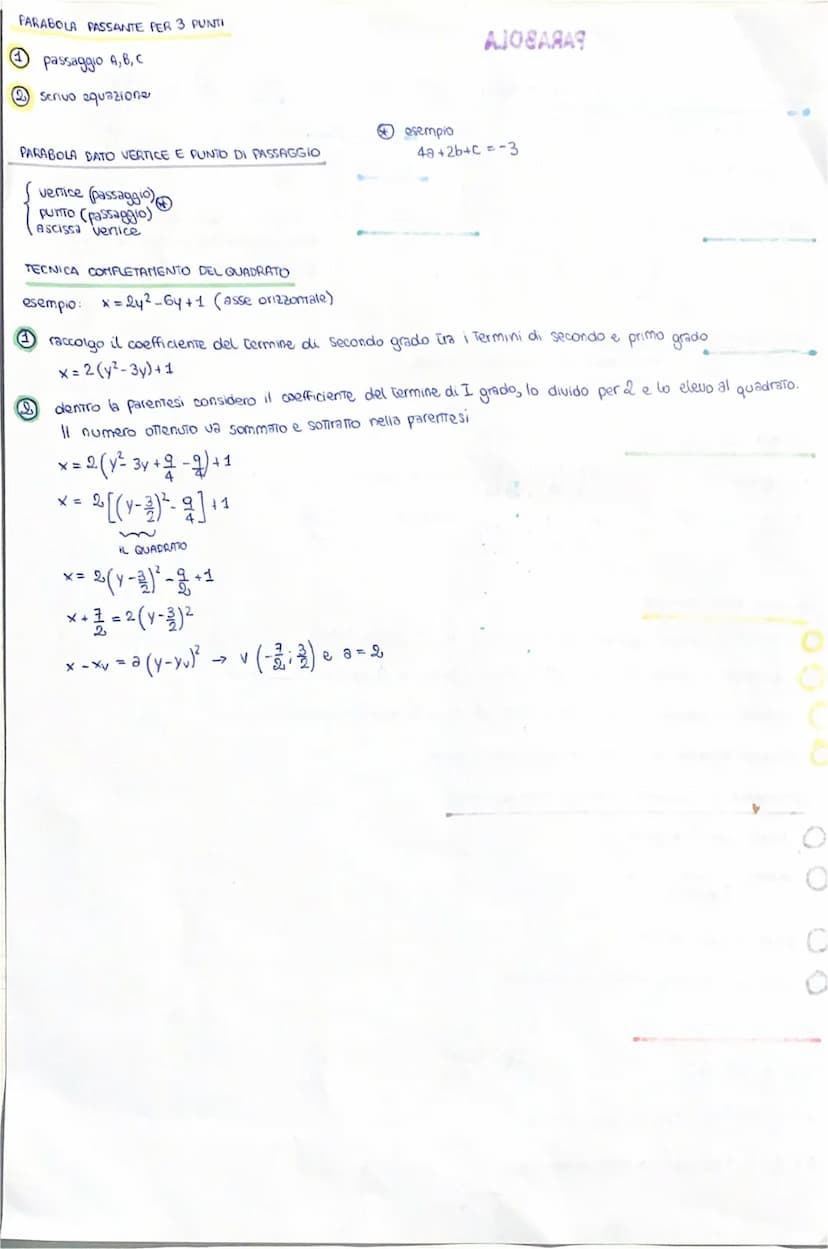 PARABOLA PASSANTE PER 3 PUNTI
① passaggio A, B, C
② scrivo equazione
PARABOLA
PARABOLA DATO VERTICE E PUNTO DI PASSAGGIO
{ vertice (passaggio) ⊛
PUNTO (passaggio)
ASCISSA vertice
⊛ esempio
4a+2b+c = -3
TECNICA COMPLETAMENTO DEL QUADRATO
esempio: x = 2y² - 6y + 1 (asse orizzontale)
① raccolgo il coefficiente del termine di secondo grado tra i termini di secondo e primo grado
x = 2(y² - 3y) + 1
② dentro la parentesi considero il coefficiente del termine di I grado, lo divido per 2 e lo elevo al quadrato.
Il numero ottenuto va sommato e sottratto nella parentesi
x = 2(y² - 3y + 9/4 - 9/4) + 1
x = 2[(y - 3/2)² - 9/4] + 1
IL QUADRATO
x = 2(y - 3/2)² - 9/2 + 1
x + 7/2 = 2(y - 3/2)²
x - xv = a(y - yv)² → V(-7/2; 3/2) e a = 2